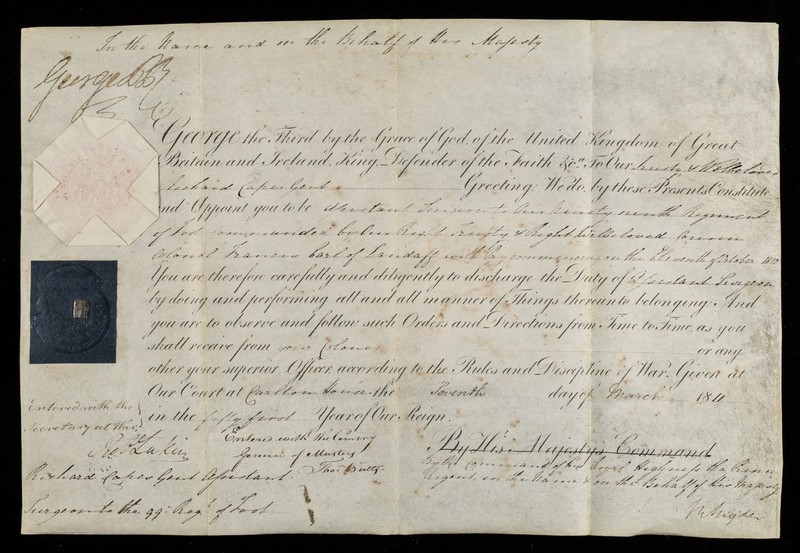 In the Name and on the Behalf of His Majesty
George P R
George the Third by the Grace of God, of the United Kingdom of Great
Britain and Ireland, King, Defender of the Faith &c.a To Our Trusty & Welbeloved
Richard Capes Gent Greeting: We do, by these Presents Constitute
and Appoint you to be Assistant Surgeon to Our Ninety ninth Regiment
of Foot commanded by Our Right Trusty & Right Welbeloved Cousin
Colonel Francis Earl of Landaff with Pay commencing on the Eleventh of October 1810
You are therefore carefully and diligently to discharge the Duty of Assistant Surgeon
by doing and performing all and all manner of Things thereunto belonging: And
you are to observe and follow such Orders and Directions from Time to Time, as you
shall receive from your Colonel or any
other your superior Officer, according to the Rules and Discipline of War. Given at
Our Court at Carlton House the Seventh day of March 1811
in the fifty first Year of Our Reign.
Entered with the
Secretary at War
Entered with the Commy
General of Musters
By His Majesty's Command
By the Command of His Royal Highness the Prince
Regent, in the Name & on the Behalf of His Majesty
Richard Capes Gent Assistant
Surgeon to the 99th Regt of Foot